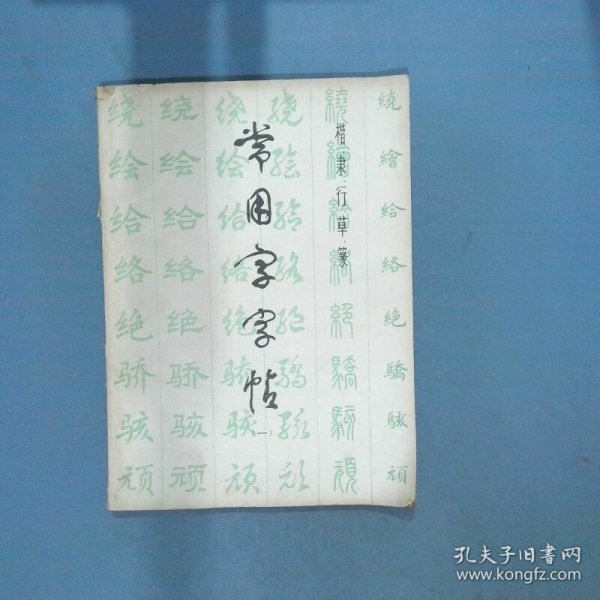 常用字字帖
一
楷·隶·行·草·篆
绕绕绕绕繞繞
绘绘绘绘繪繪
给给给给給給
络络络络絡絡
绝绝绝绝絕絕
骄骄骄骄驕驕
骇骇骇骇駭駭
顽顽顽顽頑頑
孔夫子旧书网
www.kongfz.com